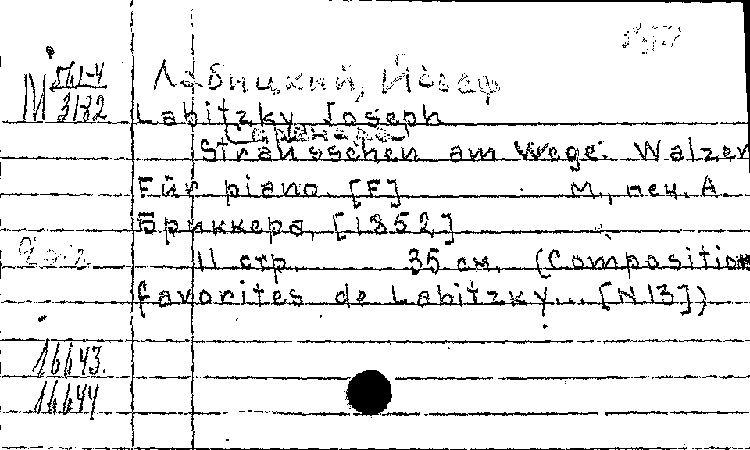 М 561-4
3182
Лабицкий, Йозеф
Labitzky Joseph
Sträusschen am Wege. Walzer
Für piano. [F] М., печ. А.
Бриккера, [1852]
11 стр. 35 см. (Composition
favorites de Labitzky... [N.13])
16643.
16644